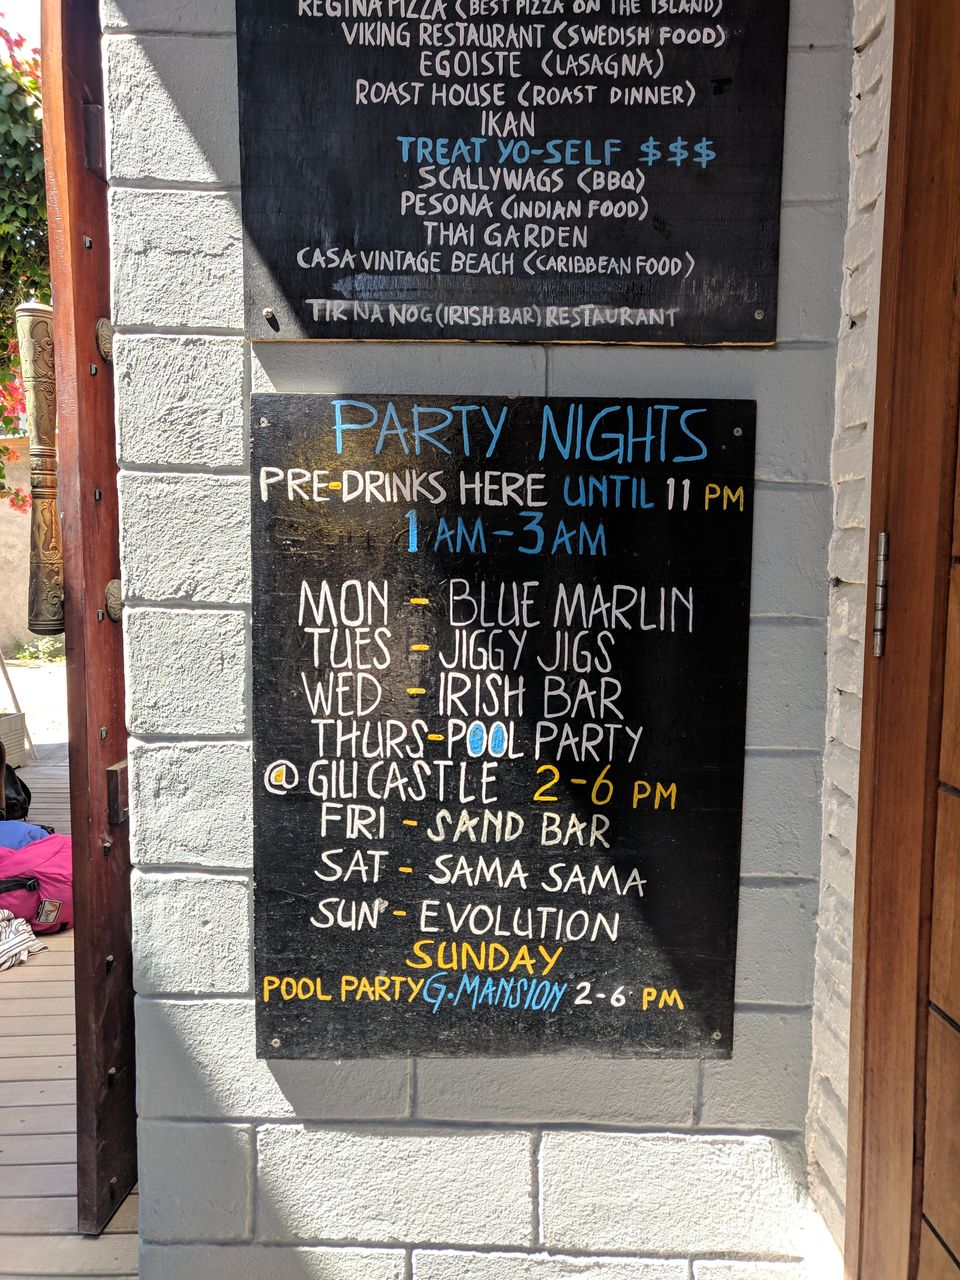 REGINA PIZZA (BEST PIZZA ON THE ISLAND)
VIKING RESTAURANT (SWEDISH FOOD)
EGOISTE (LASAGNA)
ROAST HOUSE (ROAST DINNER)
IKAN
TREAT YO-SELF $$$
SCALLYWAGS (BBQ)
PESONA (INDIAN FOOD)
THAI GARDEN
CASA VINTAGE BEACH (CARIBBEAN FOOD)
TIR NA NOG (IRISH BAR) RESTAURANT
PARTY NIGHTS
PRE-DRINKS HERE UNTIL 11 PM
1 AM - 3 AM
MON - BLUE MARLIN
TUES - JIGGY JIGS
WED - IRISH BAR
THURS - POOL PARTY
@ GILI CASTLE 2-6 PM
FRI - SAND BAR
SAT - SAMA SAMA
SUN - EVOLUTION
SUNDAY
POOL PARTY G.MANSION 2-6 PM